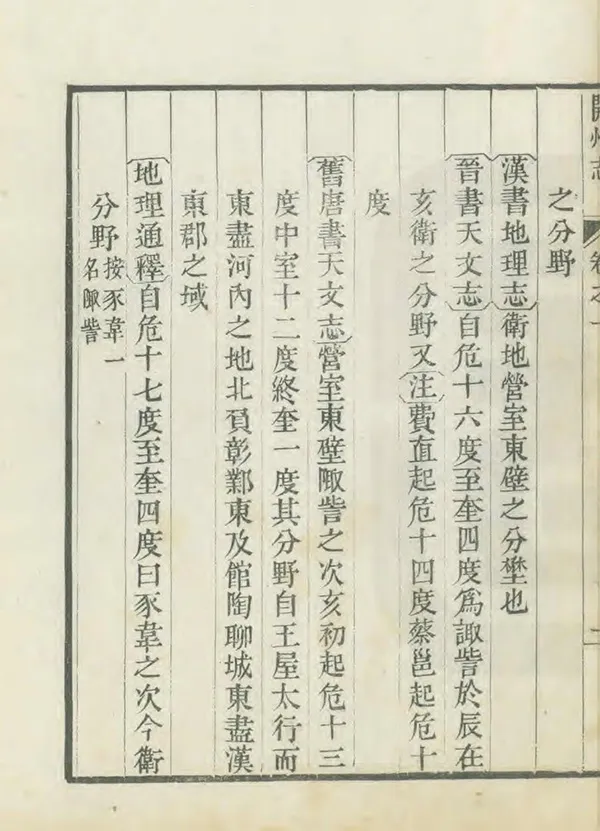 開州志 卷之一 二
之分野
漢書地理志衛地營室東壁之分壄也
晉書天文志自危十六度至奎四度爲諏訾於辰在
亥衛之分野又注費直起危十四度蔡邕起危十
度
舊唐書天文志營室東壁陬訾之次亥初起危十三
度中室十二度終奎一度其分野自王屋太行而
東盡河內之地北負彰鄴東及館陶聊城東盡漢
東郡之域
地理通釋自危十七度至奎四度曰豕韋之次今衛
分野按豕韋一
名陬訾